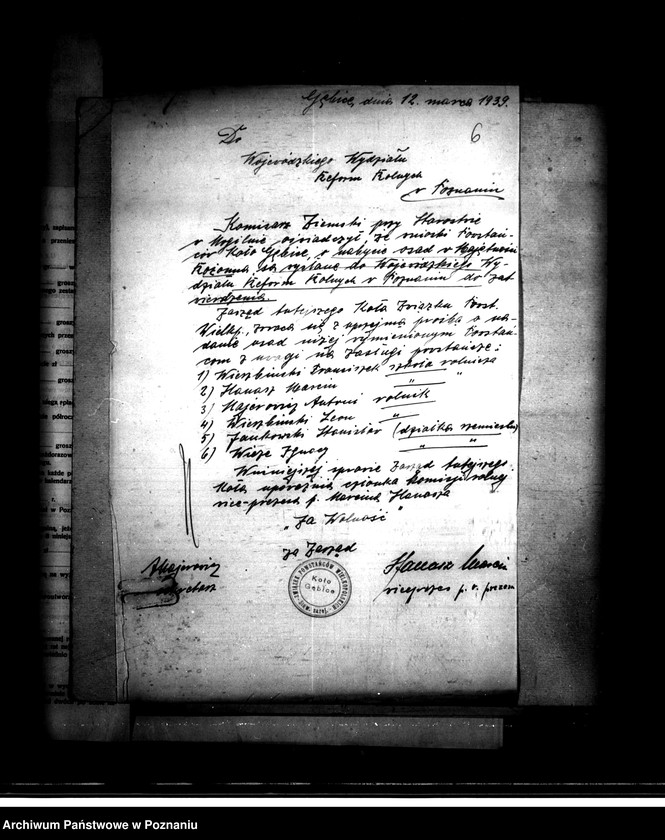 Gębice, dnia 12. marca 1939.
6
Do
Wojewódzkiego Wydziału
Reform Rolnych
w Poznaniu
Komisarz Ziemski przy Starostwie
w Mogilnie oświadczył, że wnioski Powstań-
ców Koło Gębice, o nabycie osad w Majętności
są wysłane do Wojewódzkiego Wy-
działu Reform Rolnych w Poznaniu do zat-
wierdzenia.
Zarząd tutejszego Koła Związku Powst.
Wielkp. zwraca się z uprzejmą prośbą o na-
danie osad niżej wymienionym Powstań-
com z uwagi na zasługi powstańcze:
1) Wierzbiński Franciszek szkoła rolnicza
2) Hanasz Marcin " "
3) Majerowicz Antoni rolnik
4) Wierzbiński Leon "
5) Jankowski Stanisław (działka rzemieśln)
6) Ignacy " "
W niniejszej sprawie Zarząd tutejszego
Koła upoważnia członka komisji rolnej
vice-prezesa p. Marcina Hanasza
"Za Wolność"
Za Zarząd
AMajerowicz
sekretarz
Hanasz Marcin
viceprezes p. o. prezesa
ZWIĄZEK POWSTAŃCÓW WIELKOPOLSKICH
Koło
Gębice
Archiwum Państwowe w Poznaniu